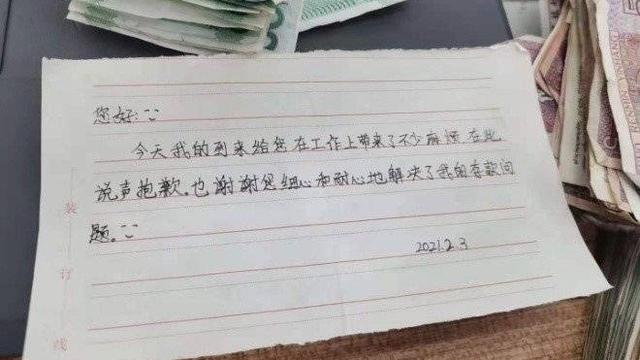 您好:
今天我的到来给您在工作上带来了不少麻烦在此
说声抱歉.也谢谢您细心和耐心地解决了我的存款问
题.
2021.2.3
装
订
线